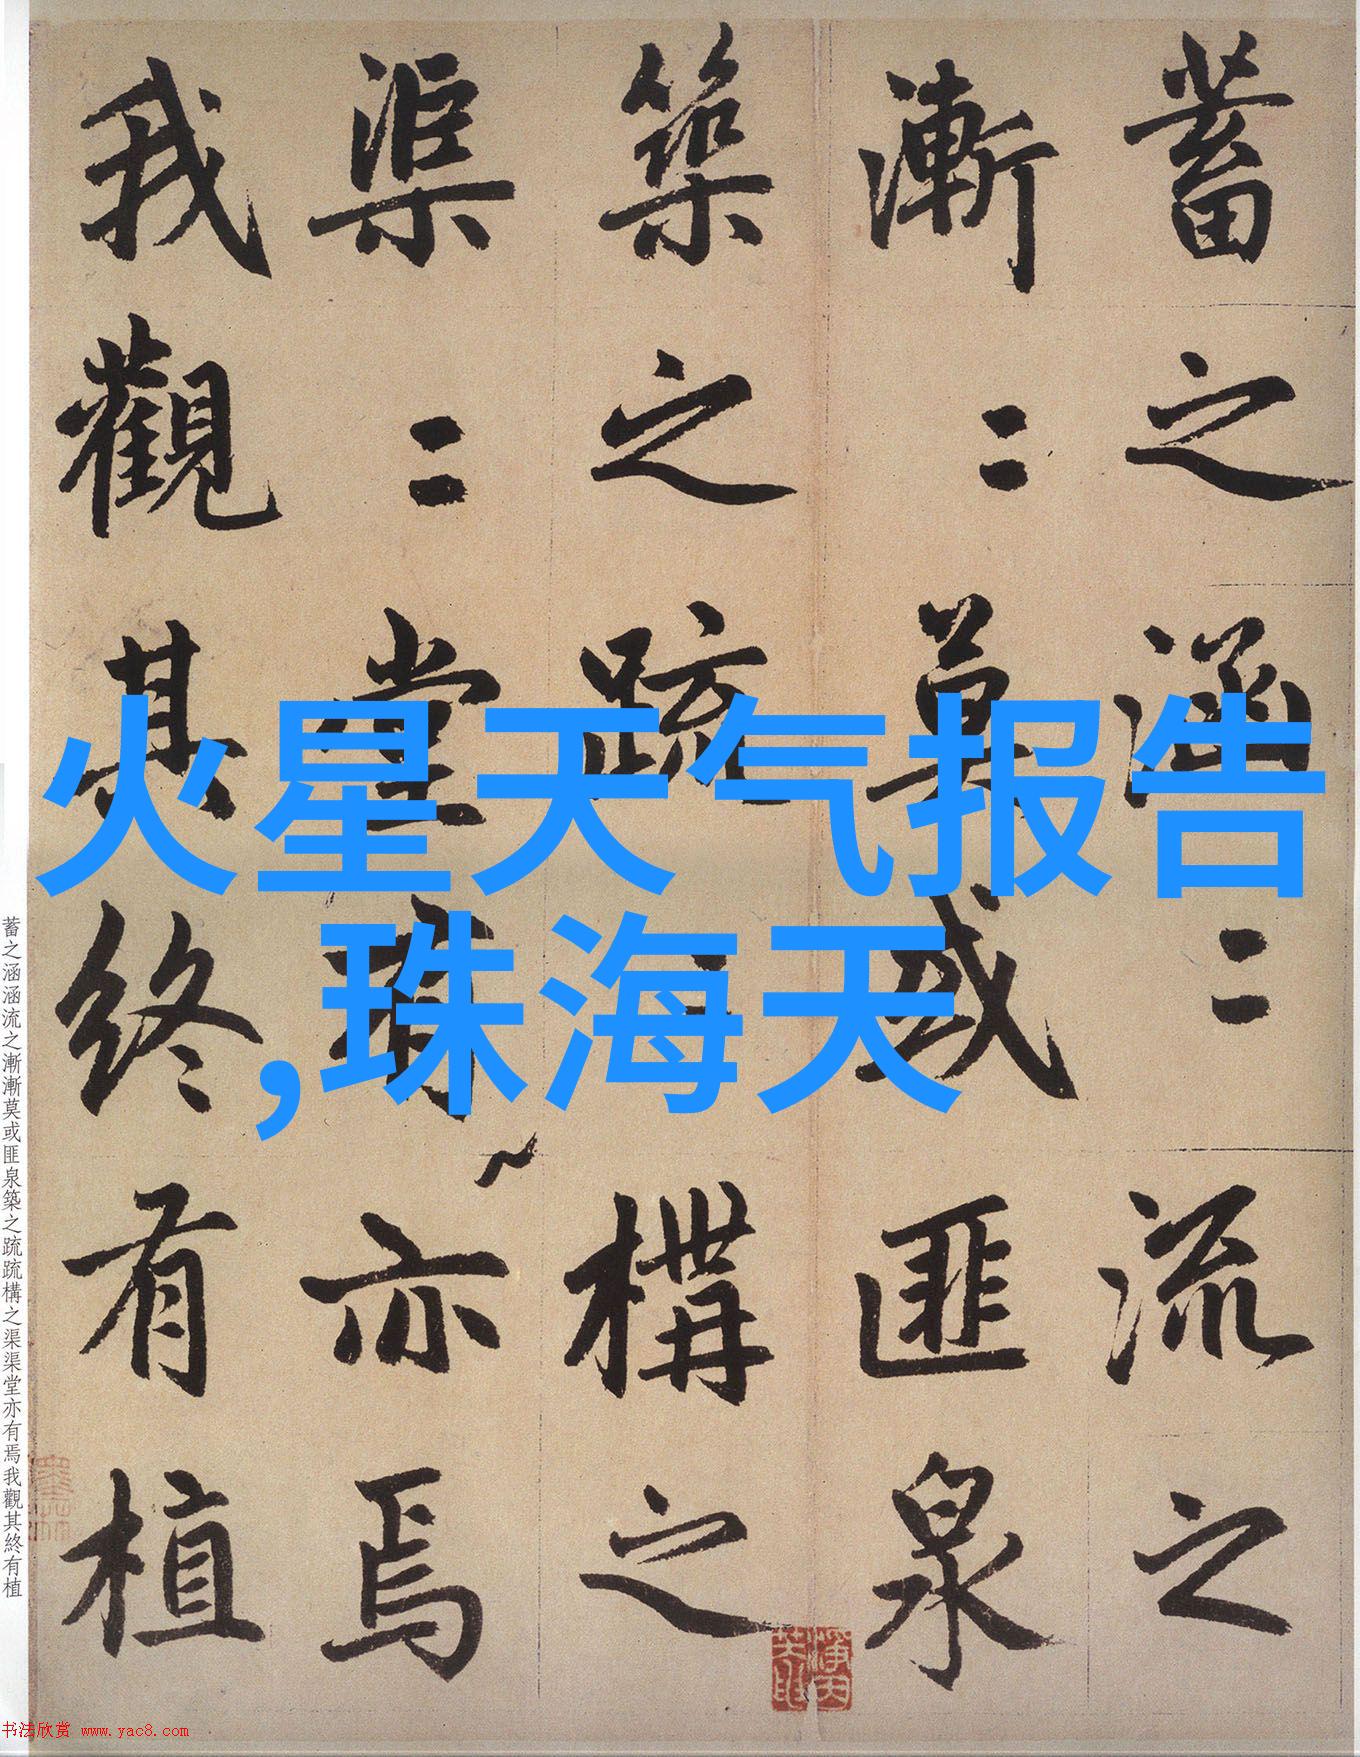 蓄之涵〻流之
漸〻莫或匪泉
築之疏〻構之
渠〻堂有亦焉
我觀其終有植
火星天气报告
,珠海天
蓄之涵涵流之漸漸莫或匪泉築之疏疏構之渠渠堂亦有焉我觀其終有植
书法欣赏 www.yac8.com